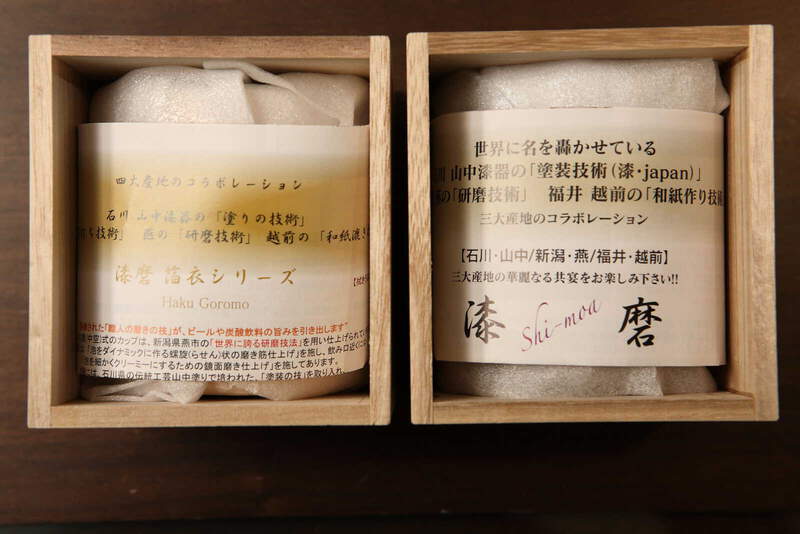 四大産地のコラボレーション
石川 山中漆器の「塗りの技術」
ち技術」 燕の「研磨技術」 越前の「和紙漉き
漆磨 箔衣シリーズ
Haku Goromo
された「職人の磨きの技」が、ビールや炭酸飲料の旨みを引き出します"
中空)式のカップは、新潟県燕市の「世界に誇る研磨技法」を用い仕上げられてい
「泡をダイナミックに作る螺旋(らせん)状の磨き筋仕上げ」を施し、飲み口近くに
を細かくクリーミーにするための鏡面磨き仕上げ」を施してあります。
には、石川県の伝統工芸山中塗りで培われた、「塗装の技」を取り入れ、
世界に名を轟かせている
川 山中漆器の「塗装技術(漆・japan)」
の「研磨技術」 福井 越前の「和紙作り技術
三大産地のコラボレーション
【石川・山中/新潟・燕/福井・越前】
三大産地の華麗なる共宴をお楽しみ下さい!!
漆 Shi-moa 磨